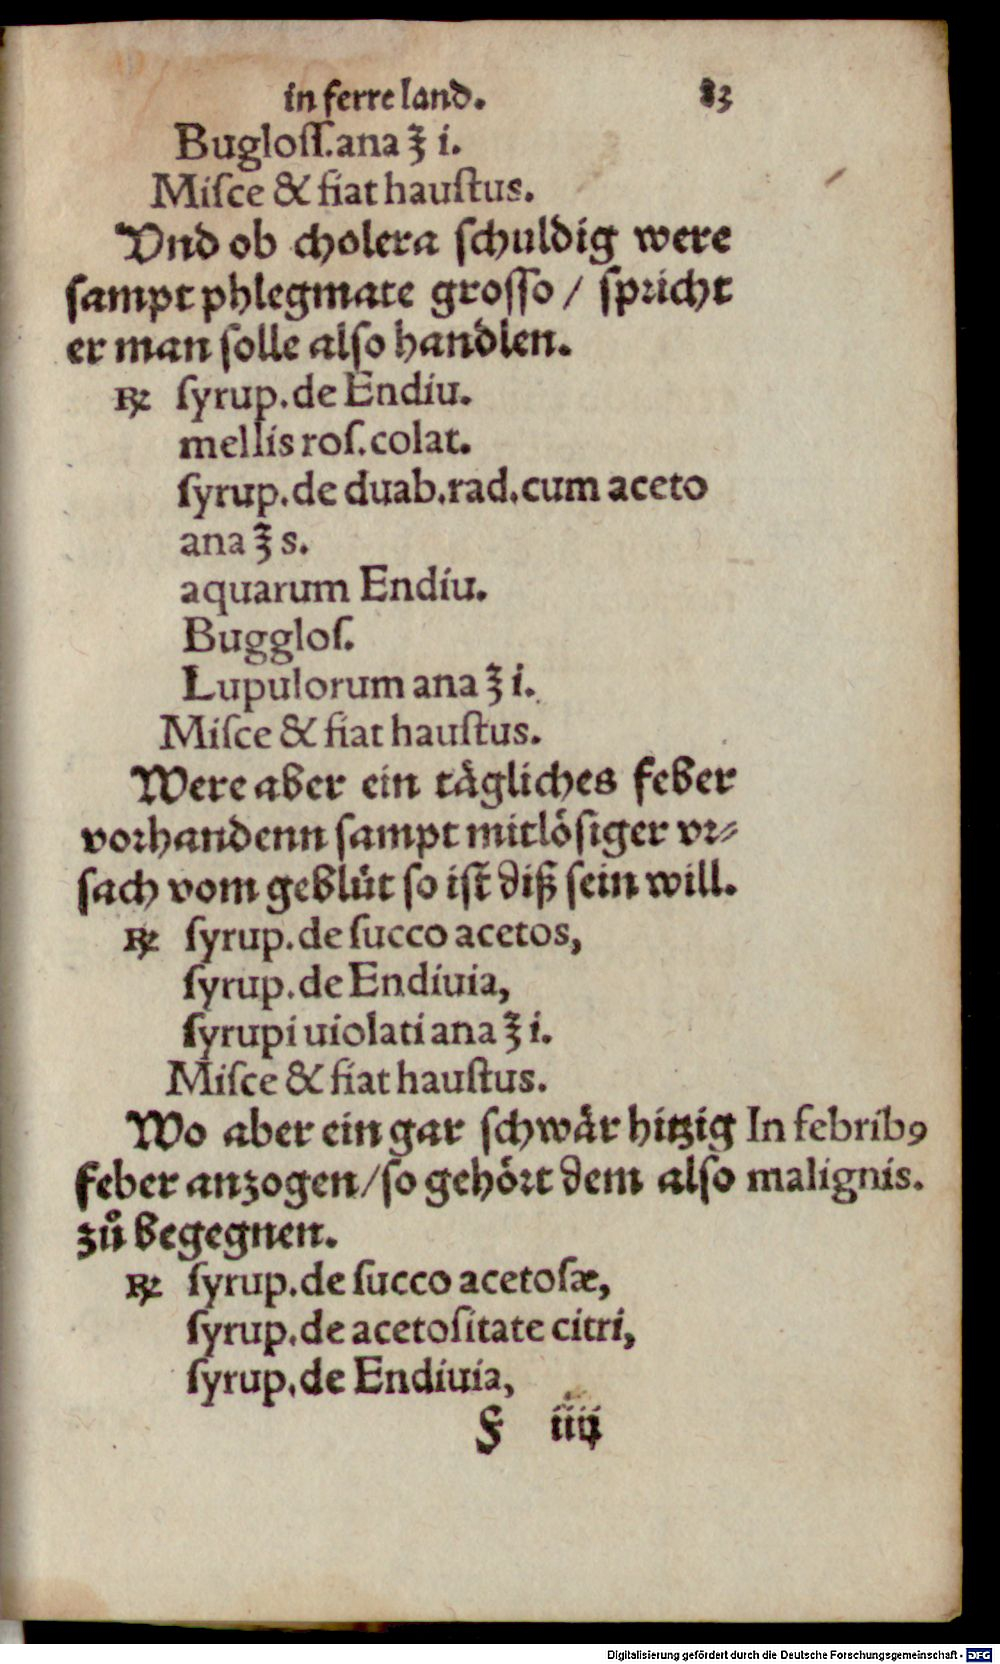 in ferre land. 83
Bugloſſ. ana ℥ i.
Miſce & fiat hauſtus.
Vnd ob cholera ſchuldig were
ſampt phlegmate groſſo / ſpricht
er man ſolle alſo handlen.
℞ ſyrup. de Endiu.
mellis roſ. colat.
ſyrup. de duab. rad. cum aceto
ana ℥ s.
aquarum Endiu.
Buggloſ.
Lupulorum ana ℥ i.
Miſce & fiat hauſtus.
Were aber ein tägliches feber
vorhandenn ſampt mitlöſiger vr⸗
ſach vom geblüt ſo iſt diß ſein will.
℞ ſyrup. de ſucco acetos,
ſyrup. de Endiuia,
ſyrupi uiolati ana ℥ i.
Miſce & fiat hauſtus.
Wo aber ein gar ſchwär hitzig In febribꝯ
feber anzogen / ſo gehört dem alſo malignis.
zů begegnen.
℞ ſyrup. de ſucco acetoſæ,
ſyrup. de acetoſitate citri,
ſyrup. de Endiuia,
F iiij
Digitalisierung gefördert durch die Deutsche Forschungsgemeinschaft - DFG